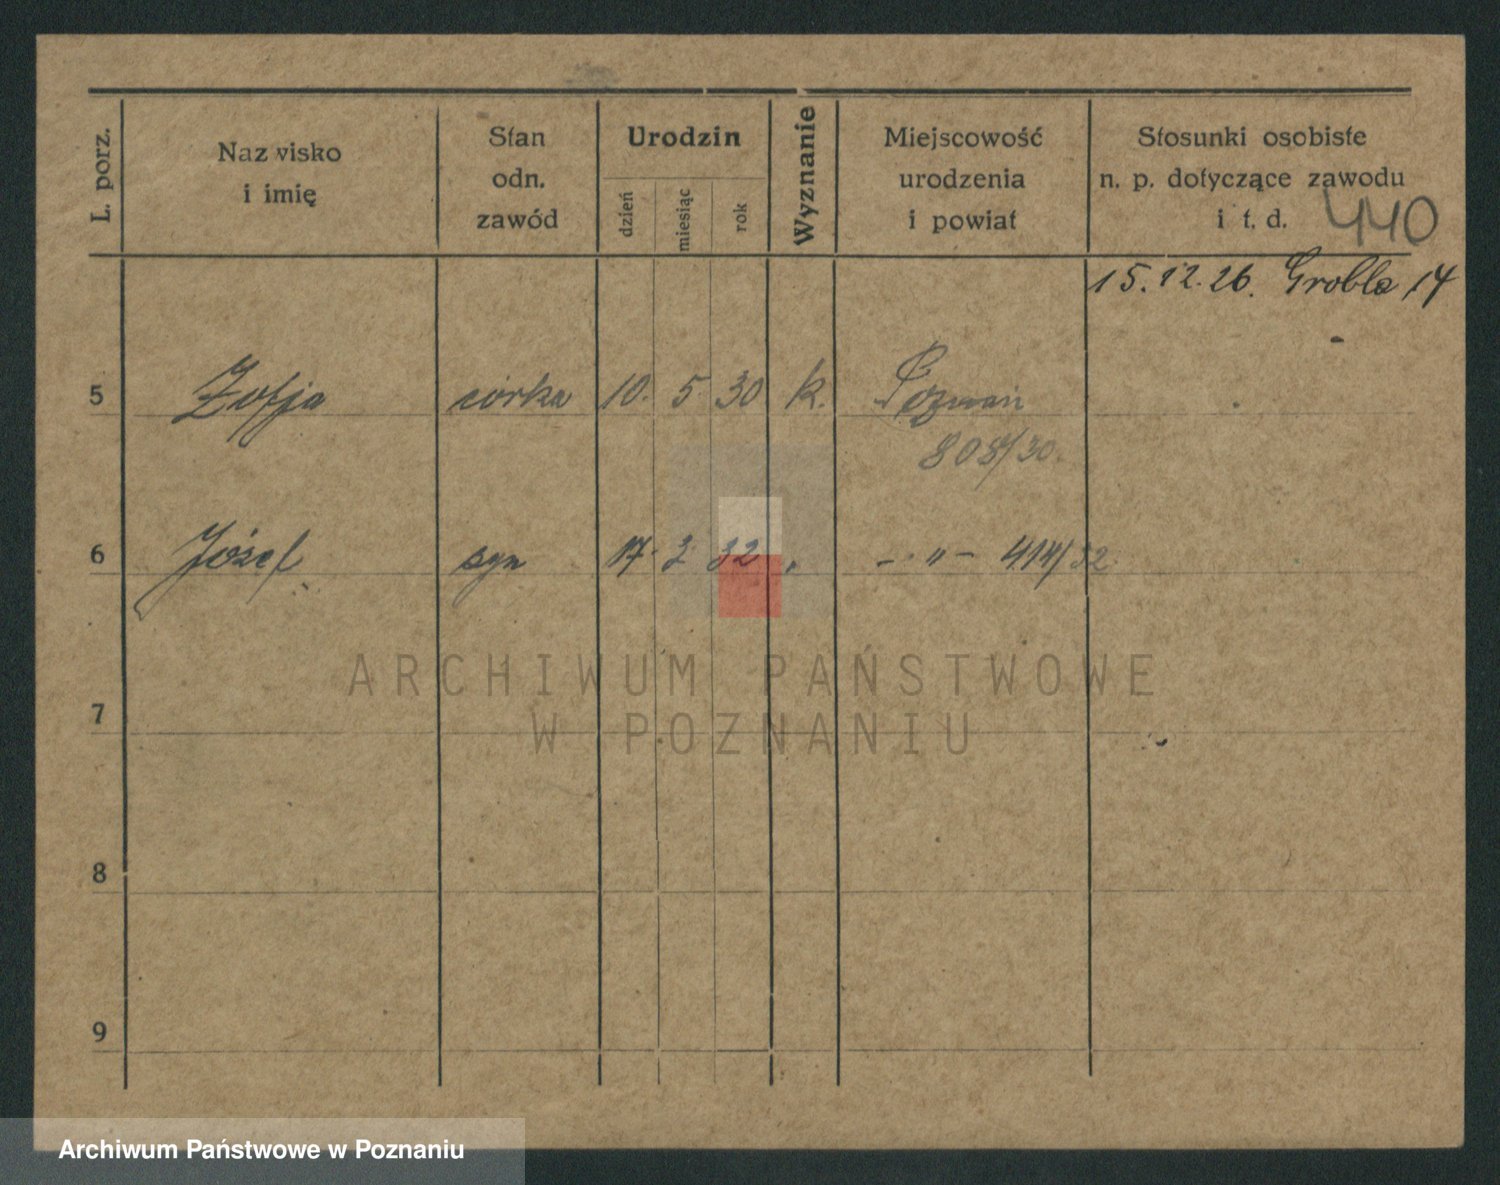 L. porz.
Nazwisko
i imię
Stan
odn.
zawód
Urodzin
dzień
miesiąc
rok
Wyznanie
Miejscowość
urodzenia
i powiat
Stosunki osobiste
n. p. dotyczące zawodu
i t. d.
440
15.12.26. Grobla 14
5 Zofja córka 10. 5. 30 k. Poznań
808/30.
6 Józef syn 17. 3. 32 " – " – 414/32.
ARCHIWUM PAŃSTWOWE
W POZNANIU
7
8
9
Archiwum Państwowe w Poznaniu